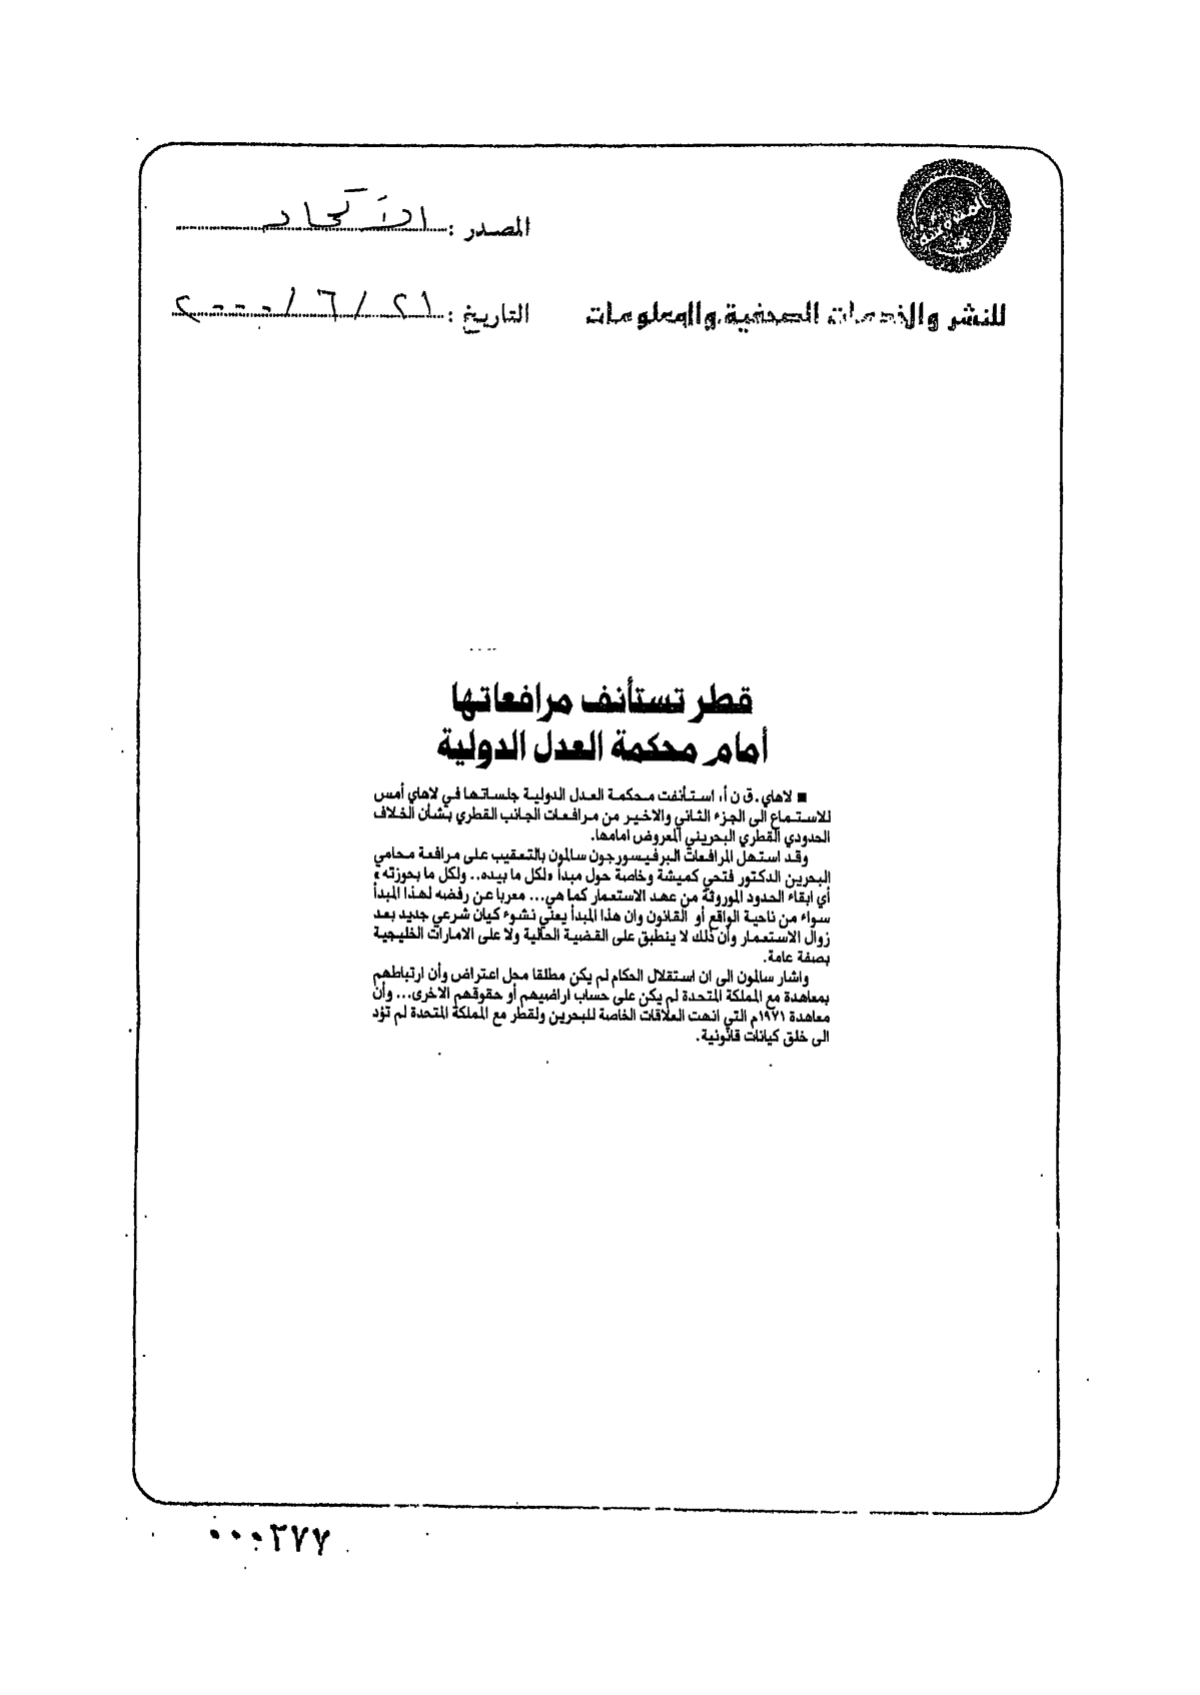 المصدر : الاتحاد
للنشر والخدمات الصحفية والمعلومات
التاريخ : ٢١ / ٦ / ٢٠٠٠
قطر تستأنف مرافعاتها
أمام محكمة العدل الدولية
■ لاهاي. ق ن أ، استأنفت محكمة العدل الدولية جلساتها في لاهاي أمس
للاستماع الى الجزء الثاني والاخير من مرافعات الجانب القطري بشأن الخلاف
الحدودي القطري البحريني المعروض امامها.
وقد استهل المرافعات البرفيسور جون سالمون بالتعقيب على مرافعة محامي
البحرين الدكتور فتحي كميشة وخاصة حول مبدأ «لكل ما بيده.. ولكل ما بحوزته»
أي ابقاء الحدود الموروثة من عهد الاستعمار كما هي... معربا عن رفضه لهذا المبدأ
سواء من ناحية الواقع أو القانون وان هذا المبدأ يعني نشوء كيان شرعي جديد بعد
زوال الاستعمار وأن ذلك لا ينطبق على القضية الحالية ولا على الامارات الخليجية
بصفة عامة.
واشار سالمون الى ان استقلال الحكام لم يكن مطلقا محل اعتراض وأن ارتباطهم
بمعاهدة مع المملكة المتحدة لم يكن على حساب اراضيهم أو حقوقهم الاخرى... وأن
معاهدة ١٩٧١م التي انهت العلاقات الخاصة للبحرين ولقطر مع المملكة المتحدة لم تؤد
الى خلق كيانات قانونية.
٠٠٠٢٧٧